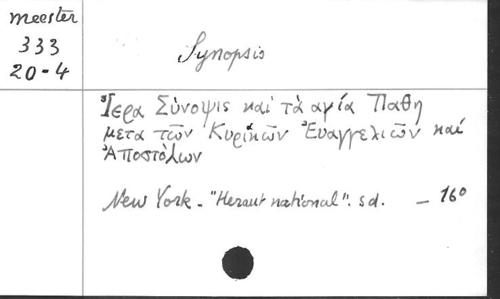 Meester
333
20-4
Synopsis
Ἱερα Σύνοψις καὶ τὰ αγία Παθη
μετα τῶν Κυρικῶν Ἐυαγγελιῶν καί
Ἀποστόλων
New York - "Heraut national". s d. - 16°